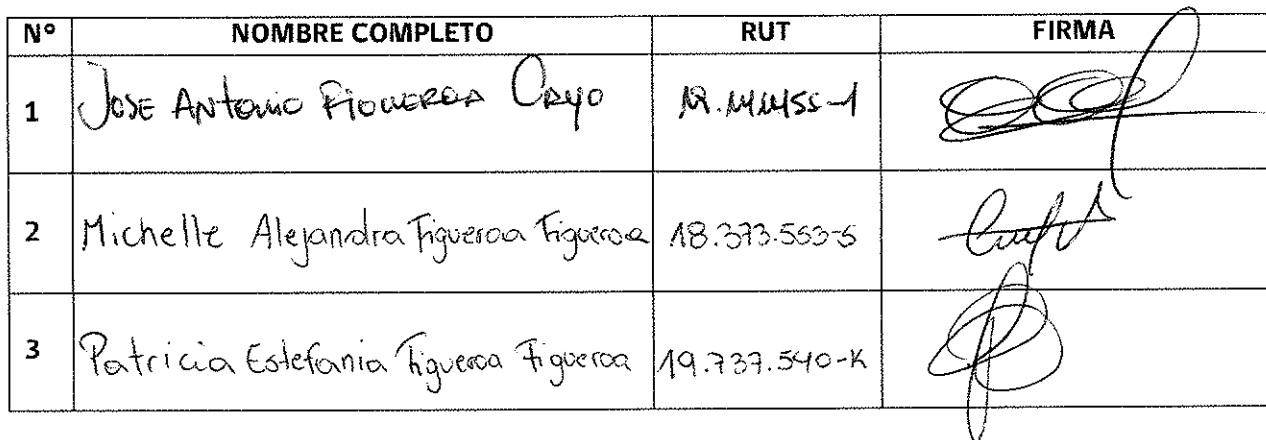 Nº NOMBRE COMPLETO RUT FIRMA
1 JOSE ANTONIO FIGUEROA CAYO
2 Michelle Alejandra Figueroa Figueroa 18.373.553-5
3 Patricia Estefania Figueroa Figueroa 19.737.540-K